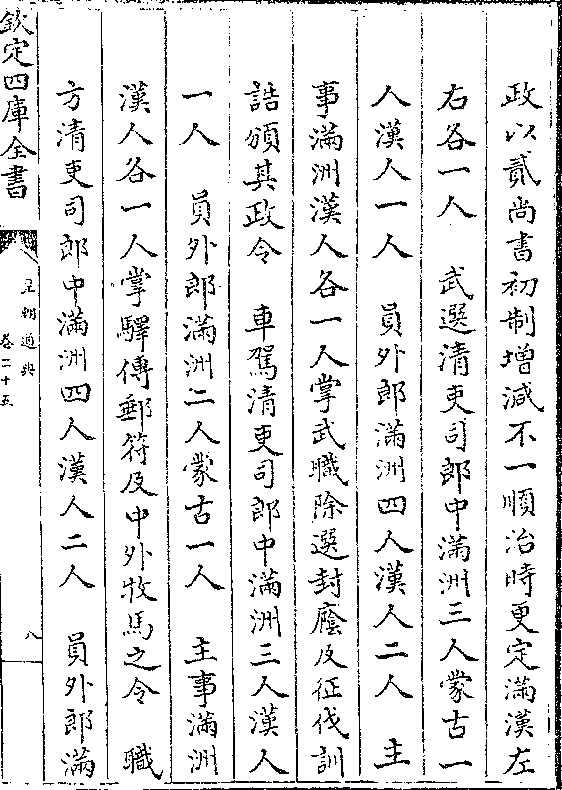 政以貳尚書初制増減不一順治時更定滿漢左
右各一人　武選清吏司郎中滿洲三人蒙古一
人漢人一人　員外郎滿洲四人漢人二人　主
事滿洲漢人各一人掌武職除選封廕及征伐訓
誥頒其政令　車駕清吏司郎中滿洲三人漢人
一人　員外郎滿洲二人蒙古一人　主事滿洲
漢人各一人掌驛傳郵符及中外牧馬之令　職
方清吏司郎中滿洲四人漢人二人　員外郎滿
欽定四庫全書
皇朝通典
卷二十五
八